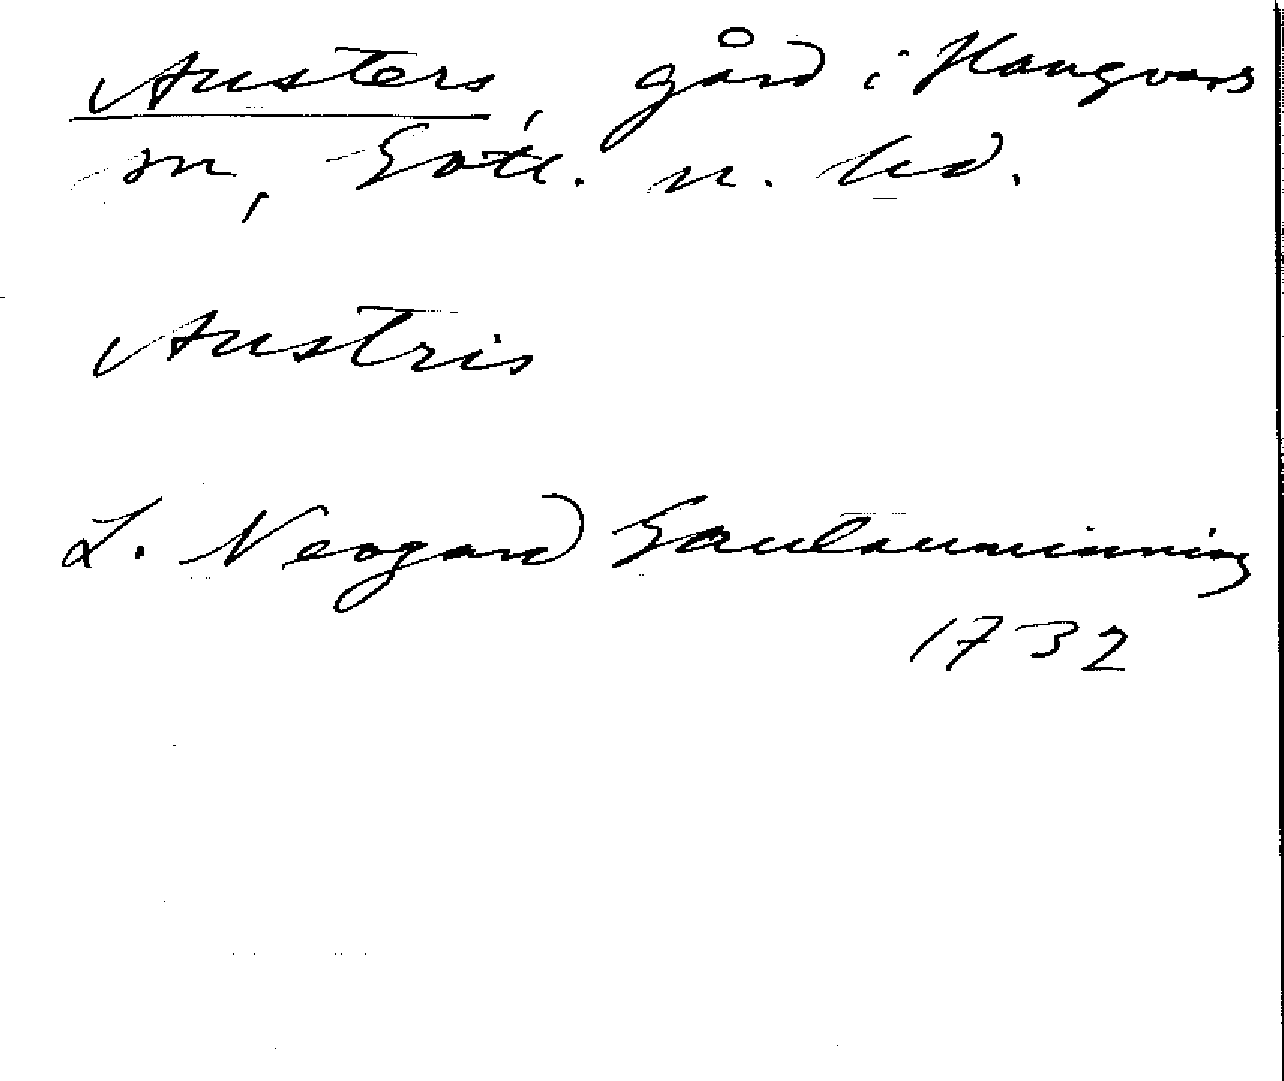 Austers, gård i Hangvars
sn, Gotl. n. hd.
Austris
L. Neogard Gaulauminning
1732